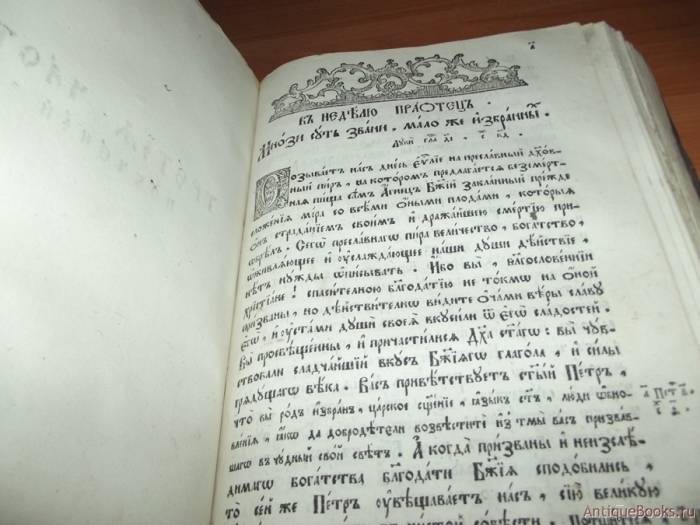 въ недѣлю праотецъ.
Мнози суть звани, мало же избранныхъ.
Луки глава ді.
Созываетъ насъ днесь Еѵліе на преславный дхов-
ный пиръ, на которомъ предлагается безсмерт-
ная пища самъ Агнецъ Бжій закланный прежде
сложенія міра со всѣми оными плодами, которыя
онъ страданіемъ своимъ и дражайшею смертію при-
обрѣлъ. Сегѡ преславнагѡ пира величество, богатство,
ѡживляющее и ѹслаждающее наши души дѣйствіе,
нѣтъ нужды ѡписывать. Ибо вы, благословенніи
христіане! спасителною благодатію не токмѡ на оной
призваны, но дѣйствителнѡ видите очами вѣры славу
Егѡ, и ѹстами души своея вкусили ѿ Егѡ сладостей.
Вы просвѣщенны, и причастилися Дха стагѡ: вы чув-
ствовали сладчайшій вкусъ Бжіягѡ глагола, и силы
грядущагѡ вѣка. Васъ привѣтствуетъ стый Петръ,
что вы родъ избранъ, царское сщеніе, языкъ стъ, люди ѡбно-
вленія, ꙗкѡ да добродѣтели возвѣстите из тмы васъ призвав-
шагѡ въ чудный свой свѣтъ. А когда призваны и неизслѣ-
димагѡ богатства благодати Бжія сподобились,
то сей же Петръ ѹвѣщаваетъ насъ, сію великую
чистой совѣсти.
AntiqueBooks.ru